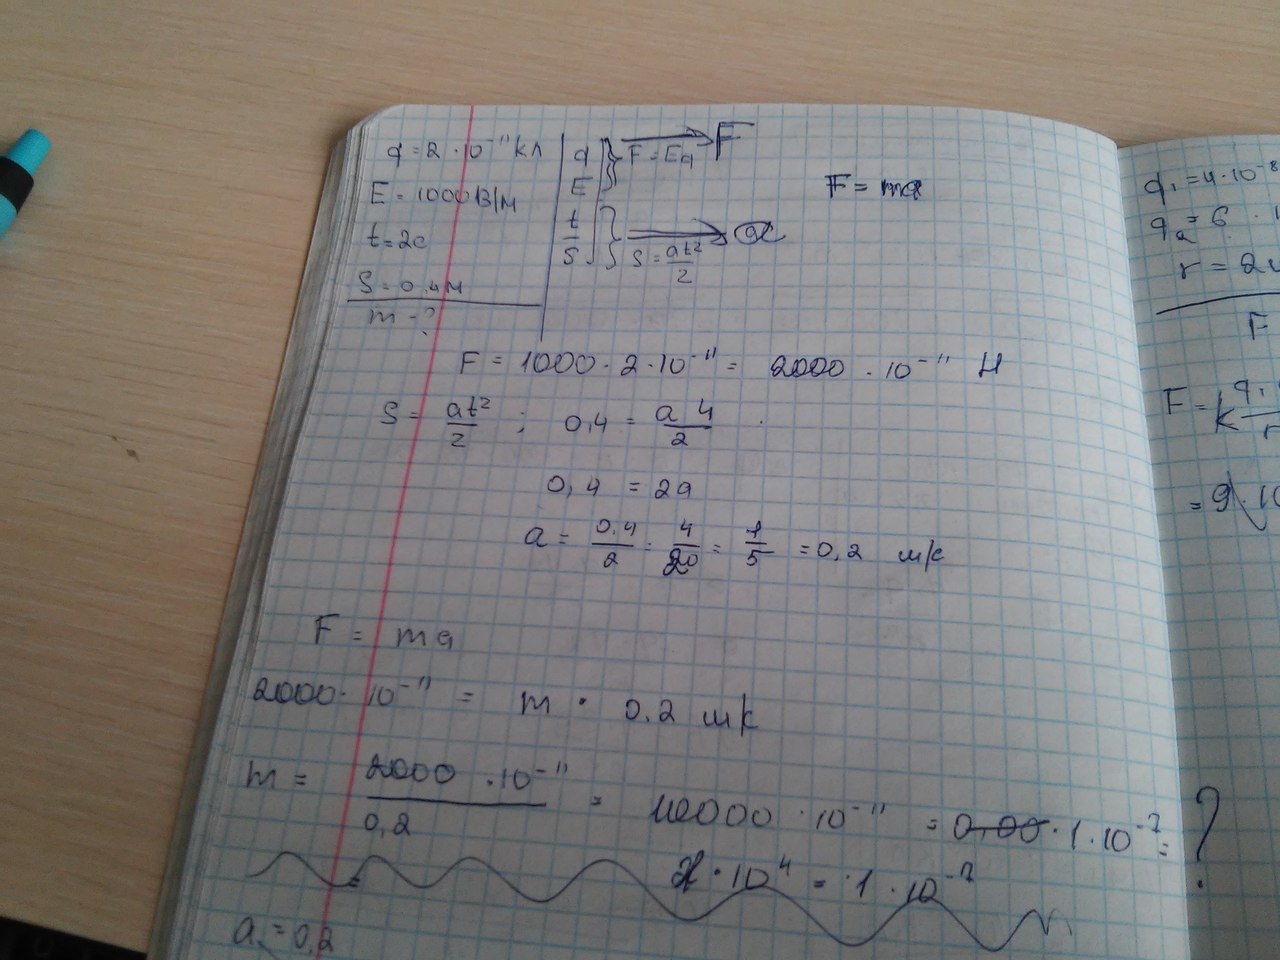 q = 2 · 10⁻¹¹ кл | q E } F = Eq → F
E = 1000 В/м
F = ma
t = 2с | t S } S = at²/2 → a
S = 0,4м
m - ?
F = 1000 · 2 · 10⁻¹¹ = 2000 · 10⁻¹¹ Н
S = at²/2 ; 0,4 = a 4/2
0,4 = 2a
a = 0,4/2 = 4/20 = 1/5 = 0,2 м/с
F = ma
2000 · 10⁻¹¹ = m · 0,2 м/с
m = 2000 · 10⁻¹¹/0,2 = 10000 · 10⁻¹¹ = 0,00 · 1 · 10⁻⁷ = ?
· 10⁴ = · 1 · 10⁻⁷
a = 0,2
q₁ = 4 · 10⁻⁸
q₂ = 6 ·
r = 2
F
F = k q₁
= 9 · 10